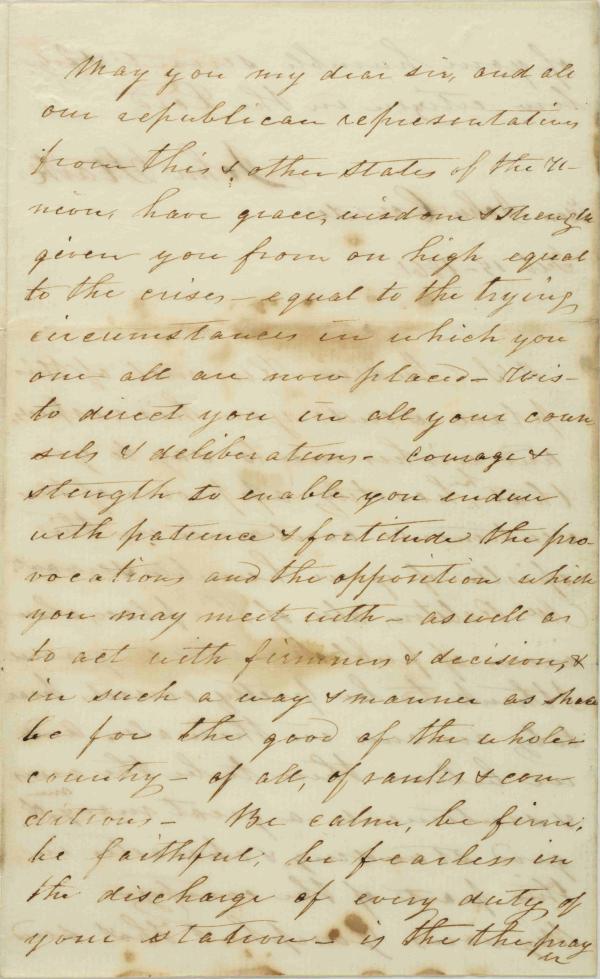 May you my dear sir, and all
our republican representatives
from this & other states of the U-
nion, have grace, wisdom & strength
given you from on high equal
to the crises - equal to the trying
circumstances in which you
one all are now placed - Wis-
to direct you in all your coun
sels & deliberations - courage &
strength to enable you endure
with patience & fortitude the pro-
vocations and the opposition which
you may meet with - as well as
to act with firmness & decision, &
in such a way & manner as shall
be for the good of the whole
country - of all, of ranks & con-
ditions - Be calm, be firm,
be faithful, be fearless in
the discharge of every duty of
your station - is the the pray
er